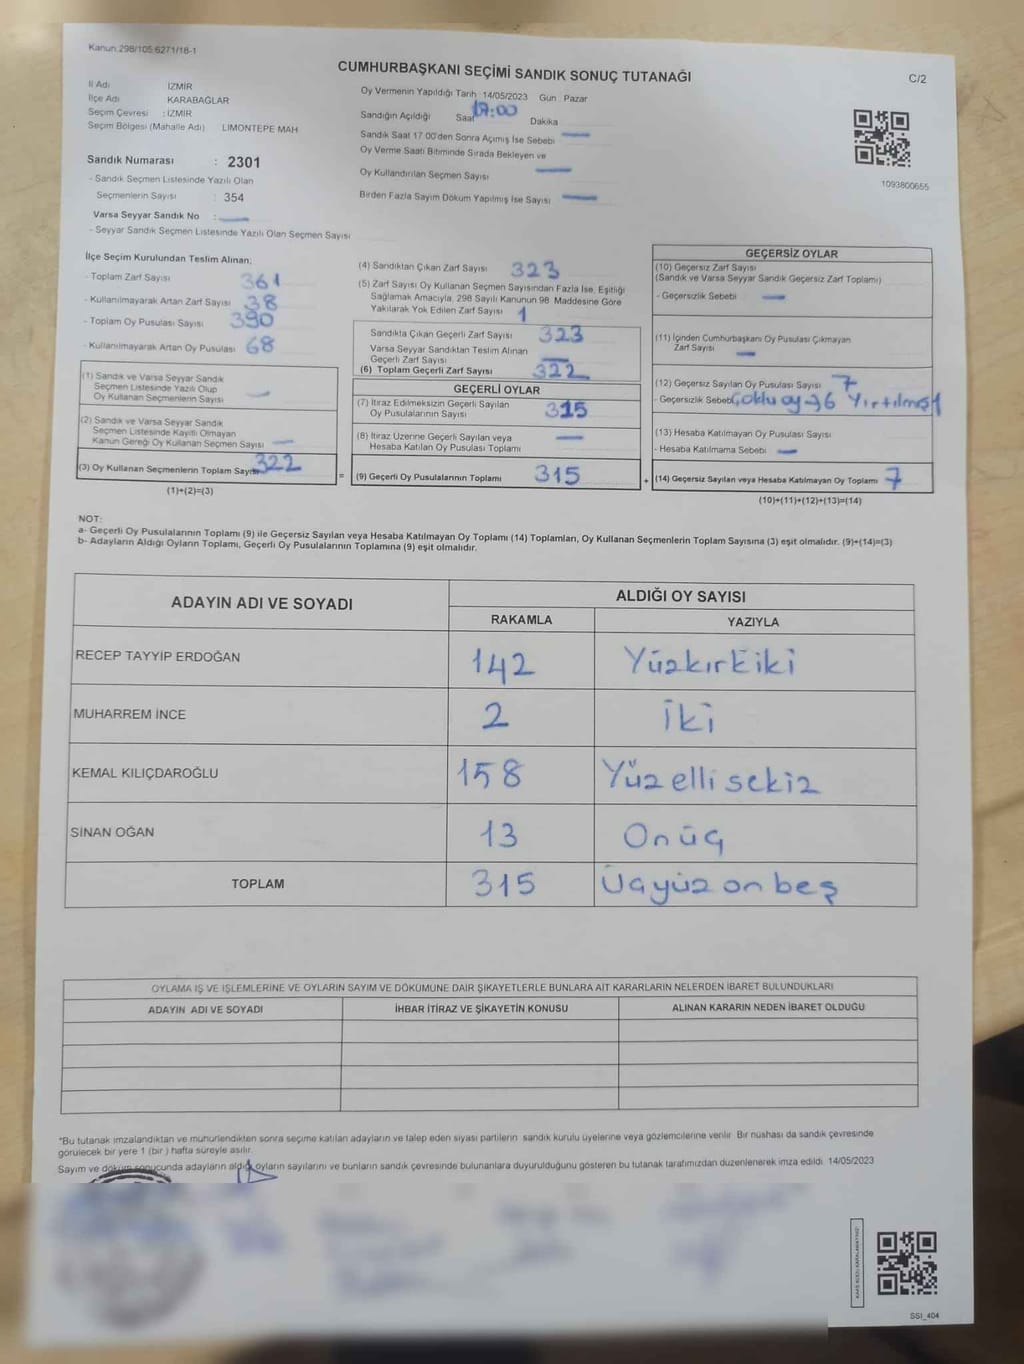 Kanun 298/105 6271/18-1
CUMHURBAŞKANI SEÇİMİ SANDIK SONUÇ TUTANAĞI
C/2
İl Adı İZMİR
İlçe Adı KARABAĞLAR
Seçim Çevresi : İZMİR
Seçim Bölgesi (Mahalle Adı) LİMONTEPE MAH
Sandık Numarası : 2301
- Sandık Seçmen Listesinde Yazılı Olan
Seçmenlerin Sayısı : 354
Varsa Seyyar Sandık No : —
- Seyyar Sandık Seçmen Listesinde Yazılı Olan Seçmen Sayısı
Oy Vermenin Yapıldığı Tarih 14/05/2023 Gün Pazar
Sandığın Açıldığı Saat 17:00 Dakika
Sandık Saat 17 00'den Sonra Açımış İse Sebebi —
Oy Verme Saati Bitiminde Sırada Bekleyen ve
Oy Kullandırılan Seçmen Sayısı —
Birden Fazla Sayım Döküm Yapılmış İse Sayısı —
1093800655
İlçe Seçim Kurulundan Teslim Alınan:
- Toplam Zarf Sayısı 361
- Kullanılmayarak Artan Zarf Sayısı 38
- Toplam Oy Pusulası Sayısı 390
- Kullanılmayarak Artan Oy Pusulası 68
(1) Sandık ve Varsa Seyyar Sandık
Seçmen Listesinde Yazılı Olup
Oy Kullanan Seçmenlerin Sayısı —
(2) Sandık ve Varsa Seyyar Sandık
Seçmen Listesinde Kayıtlı Olmayan
Kanun Gereği Oy Kullanan Seçmen Sayısı —
(3) Oy Kullanan Seçmenlerin Toplam Sayısı 322
(1)+(2)=(3)
=
(4) Sandıktan Çıkan Zarf Sayısı 323
(5) Zarf Sayısı Oy Kullanan Seçmen Sayısından Fazla İse, Eşitliği
Sağlamak Amacıyla, 298 Sayılı Kanunun 98. Maddesine Göre
Yakılarak Yok Edilen Zarf Sayısı 1
Sandıkta Çıkan Geçerli Zarf Sayısı 323
Varsa Seyyar Sandıktan Teslim Alınan
Geçerli Zarf Sayısı —
(6) Toplam Geçerli Zarf Sayısı 322
GEÇERLİ OYLAR
(7) İtiraz Edilmeksizin Geçerli Sayılan
Oy Pusulalarının Sayısı 315
(8) İtiraz Üzerine Geçerli Sayılan veya
Hesaba Katılan Oy Pusulası Toplamı —
(9) Geçerli Oy Pusulalarının Toplamı 315
+
GEÇERSİZ OYLAR
(10) Geçersiz Zarf Sayısı
(Sandık ve Varsa Seyyar Sandık Geçersiz Zarf Toplamı)
- Geçersizlik Sebebi —
(11) İçinden Cumhurbaşkanı Oy Pusulası Çıkmayan
Zarf Sayısı —
(12) Geçersiz Sayılan Oy Pusulası Sayısı 7
- Geçersizlik Sebebi Çoklu oy 6 Yırtılmış 1
(13) Hesaba Katılmayan Oy Pusulası Sayısı
- Hesaba Katılmama Sebebi —
(14) Geçersiz Sayılan veya Hesaba Katılmayan Oy Toplamı 7
(10)+(11)+(12)+(13)=(14)
NOT:
a- Geçerli Oy Pusulalarının Toplamı (9) ile Geçersiz Sayılan veya Hesaba Katılmayan Oy Toplamı (14) Toplamları, Oy Kullanan Seçmenlerin Toplam Sayısına (3) eşit olmalıdır. (9)+(14)=(3)
b- Adayların Aldığı Oyların Toplamı, Geçerli Oy Pusulalarının Toplamına (9) eşit olmalıdır.
ADAYIN ADI VE SOYADI
ALDIĞI OY SAYISI
RAKAMLA YAZIYLA
RECEP TAYYİP ERDOĞAN 142 Yüzkırkiki
MUHARREM İNCE 2 İki
KEMAL KILIÇDAROĞLU 158 Yüz elli sekiz
SİNAN OĞAN 13 On üç
TOPLAM 315 Üçyüz on beş
OYLAMA İŞ VE İŞLEMLERİNE VE OYLARIN SAYIM VE DÖKÜMÜNE DAİR ŞİKAYETLERLE BUNLARA AİT KARARLARIN NELERDEN İBARET BULUNDUKLARI
ADAYIN ADI VE SOYADI İHBAR İTİRAZ VE ŞİKAYETİN KONUSU ALINAN KARARIN NEDEN İBARET OLDUĞU
*Bu tutanak imzalandıktan ve mühürlendikten sonra seçime katılan adayların ve talep eden siyasi partilerin sandık kurulu üyelerine veya gözlemcilerine verilir. Bir nüshası da sandık çevresinde
görülecek bir yere 1 (bir ) hafta süreyle asılır.
Sayım ve döküm sonucunda adayların aldığı oyların sayılarını ve bunların sandık çevresinde bulunanlara duyurulduğunu gösteren bu tutanak tarafımızdan düzenlenerek imza edildi. 14/05/2023
SSİ_404